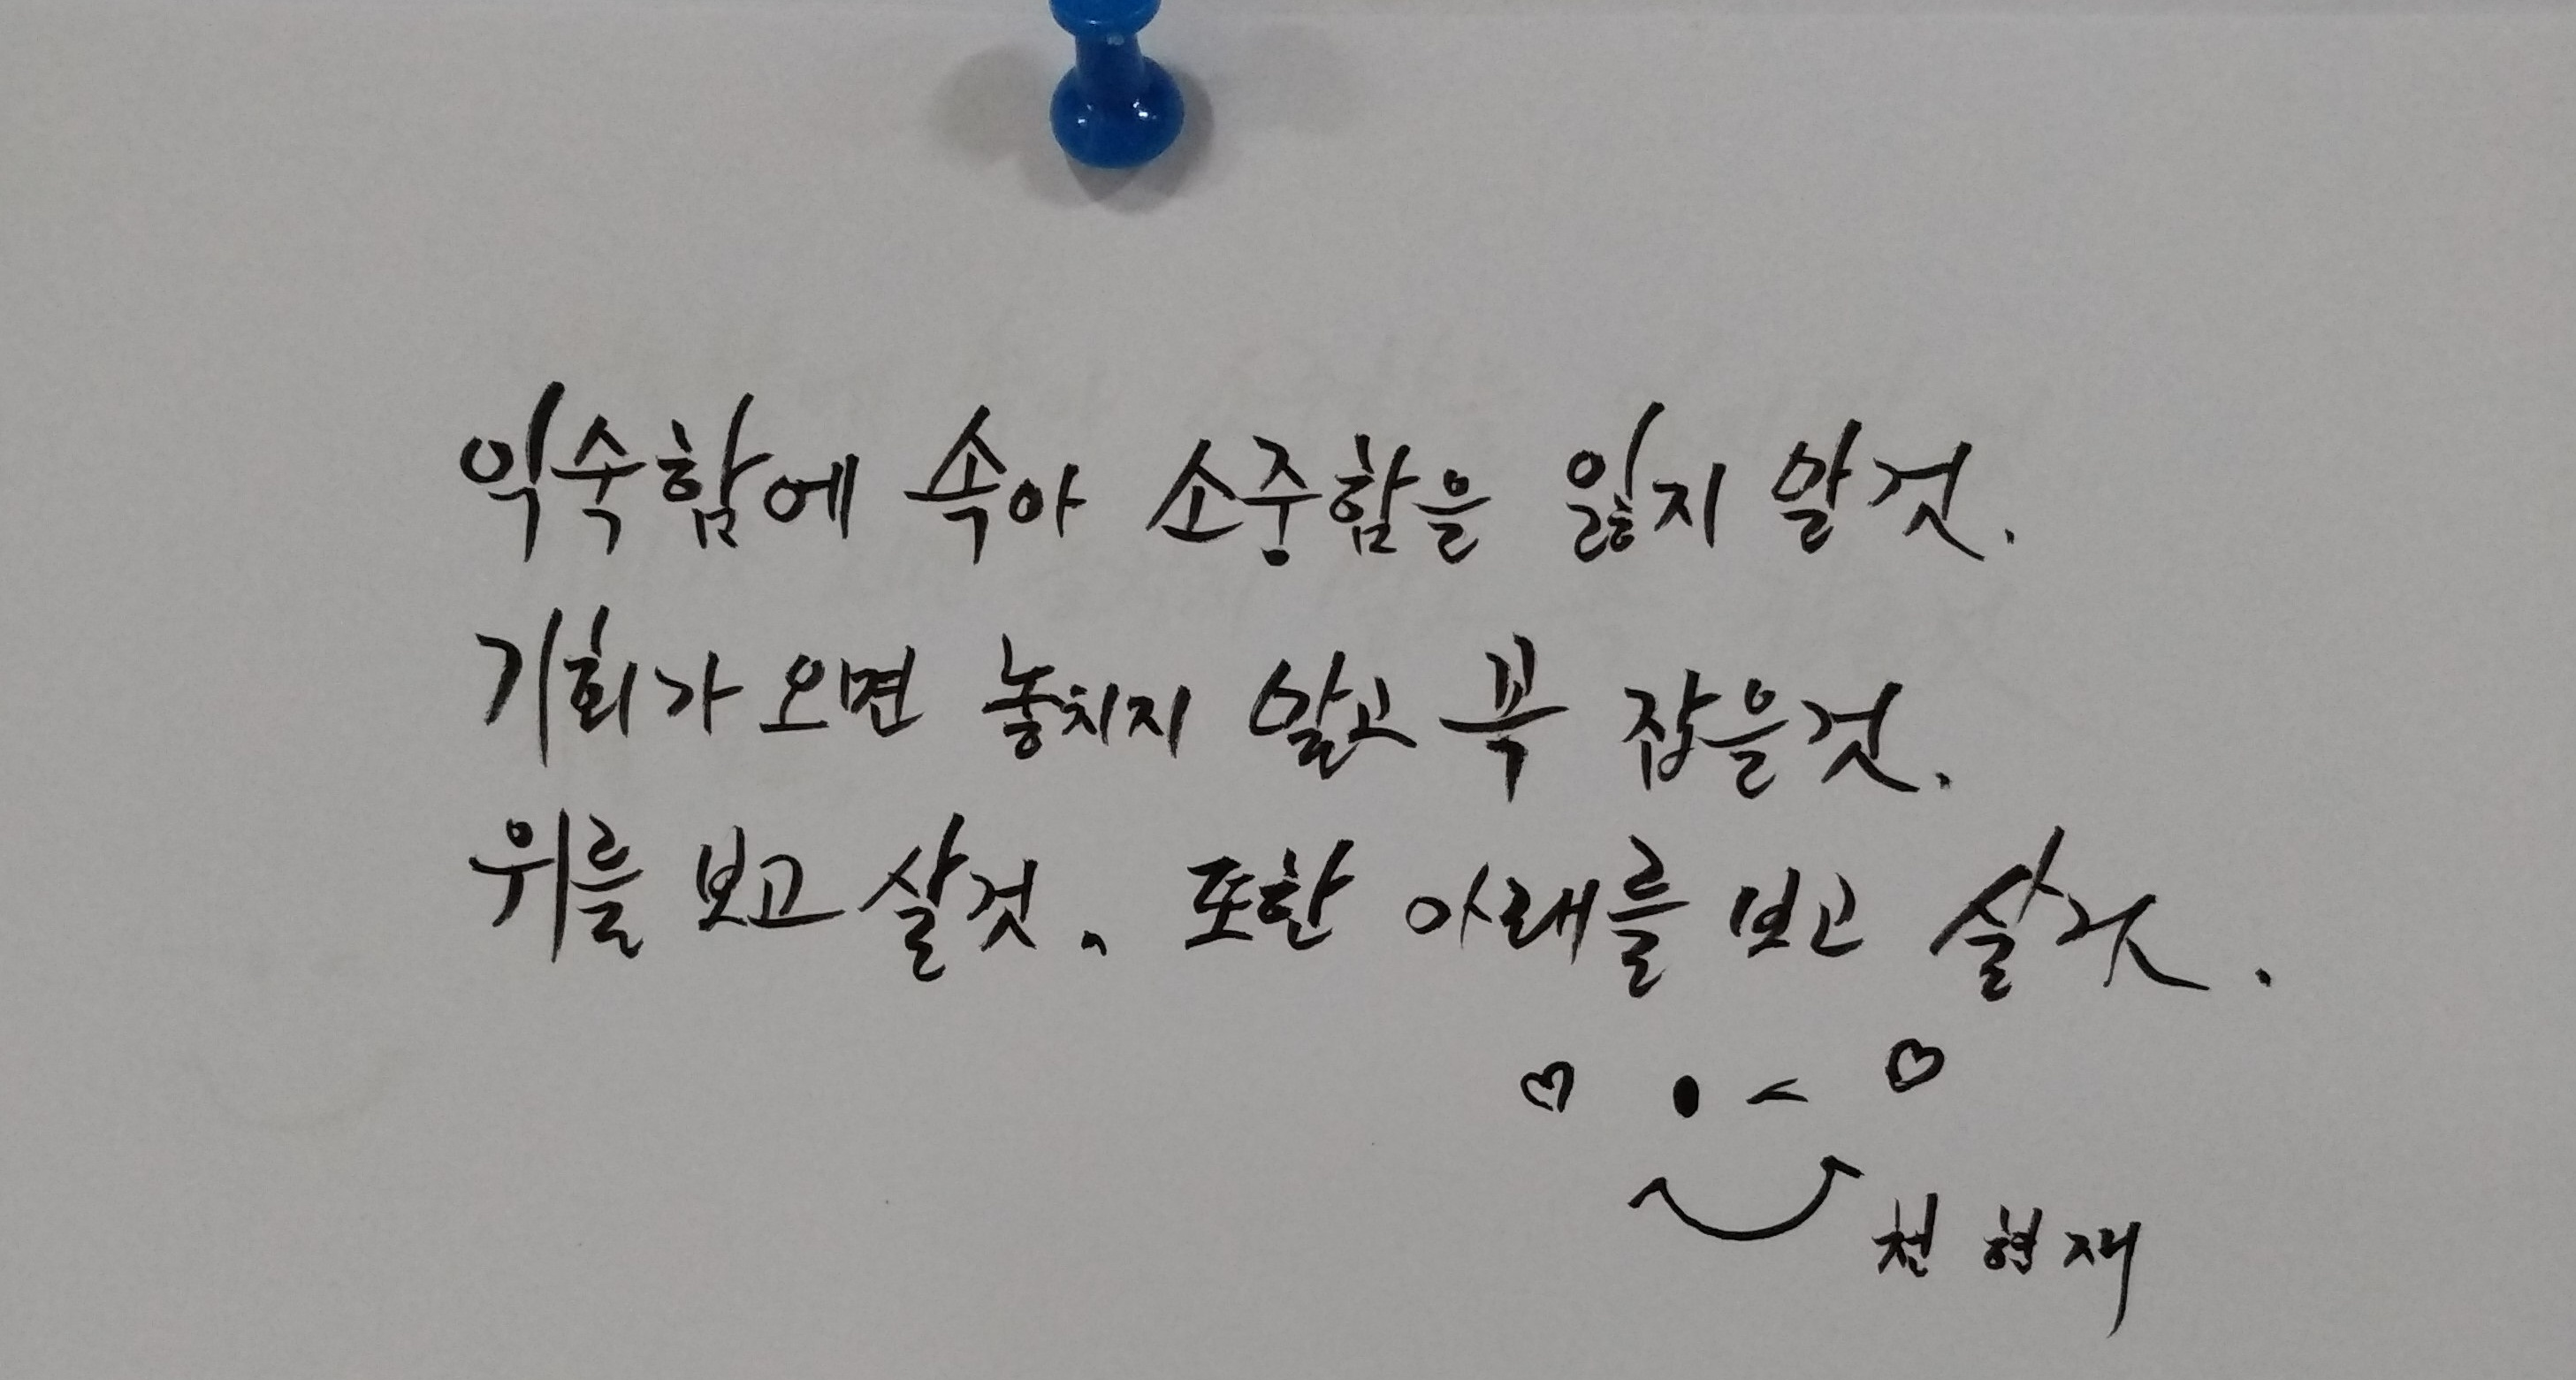 익숙함에 속아 소중함을 잃지 말것.
기회가 오면 놓치지 말고 꼭 잡을것.
위를 보고 살것. 또한 아래를 보고 살것.
천현재